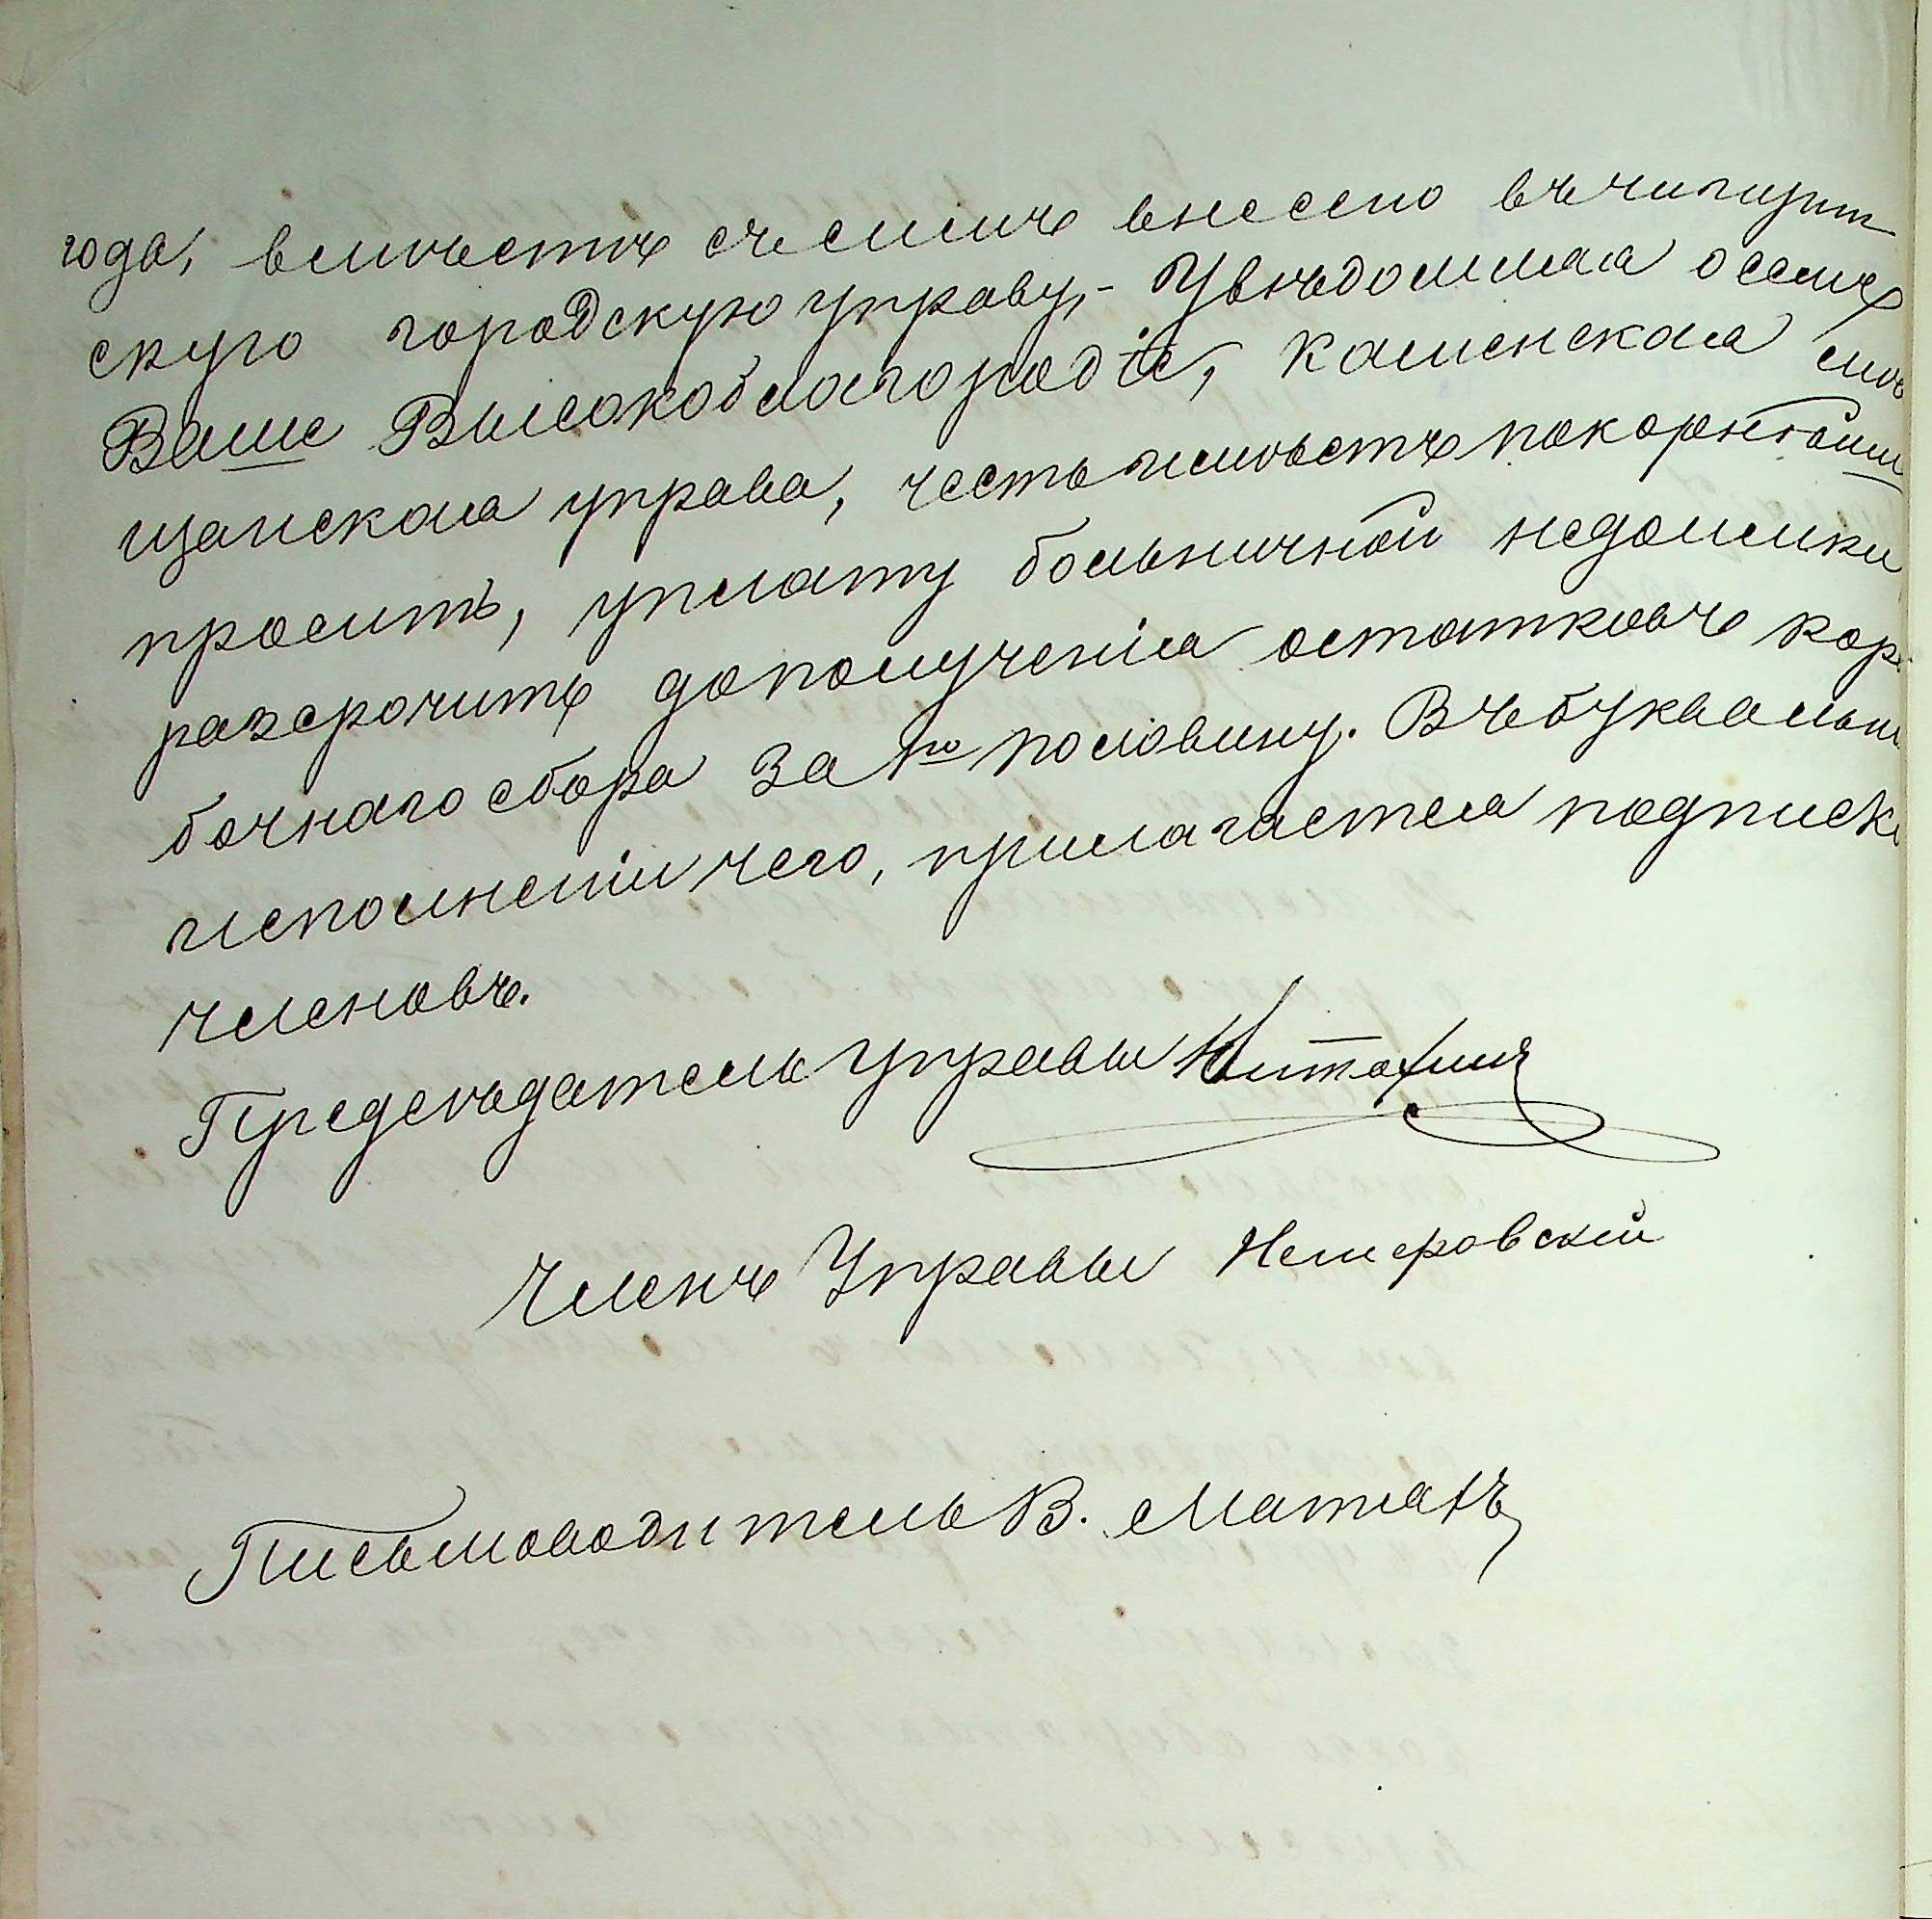 года, вмѣстѣ съ симъ внесено въ Чигирин
скую городскую управу,- Увѣдомляя о семъ
Ваше Высокоблагородіе, Каменская мѣ
щанская управа, честь имѣетъ покорнѣйше
просить, уплату больничной недоимки
разсрочить до полученія остатковъ коро
бочнаго сбора за 1ю половину. Въ буквальн
исполненіи чего, прилагается подписка
членовъ.
Предсѣдатель Управы
Членъ Управы Немеровскій
Письмоводитель В. Матвѣ